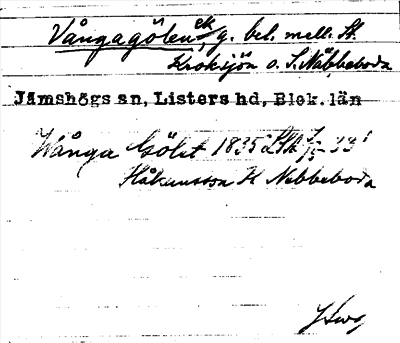 Vångagölen, ek g. bel. mell. St.
Kroksjön o. S. Näbbeboda
Jämshögs sn, Listers hd, Blek. län
Wånga Gölet 1835 LSA
Håkansson K Nebbeboda